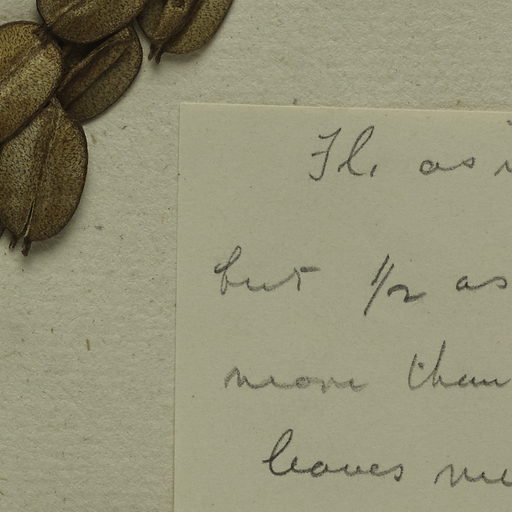 Fl. as
but 1/2 as
more than
leaves